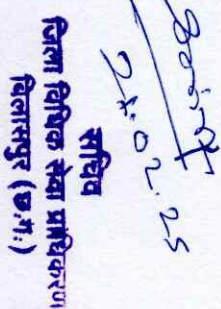 24.02.25
सचिव
जिला विधिक सेवा प्राधिकरण
बिलासपुर (छ.ग.)